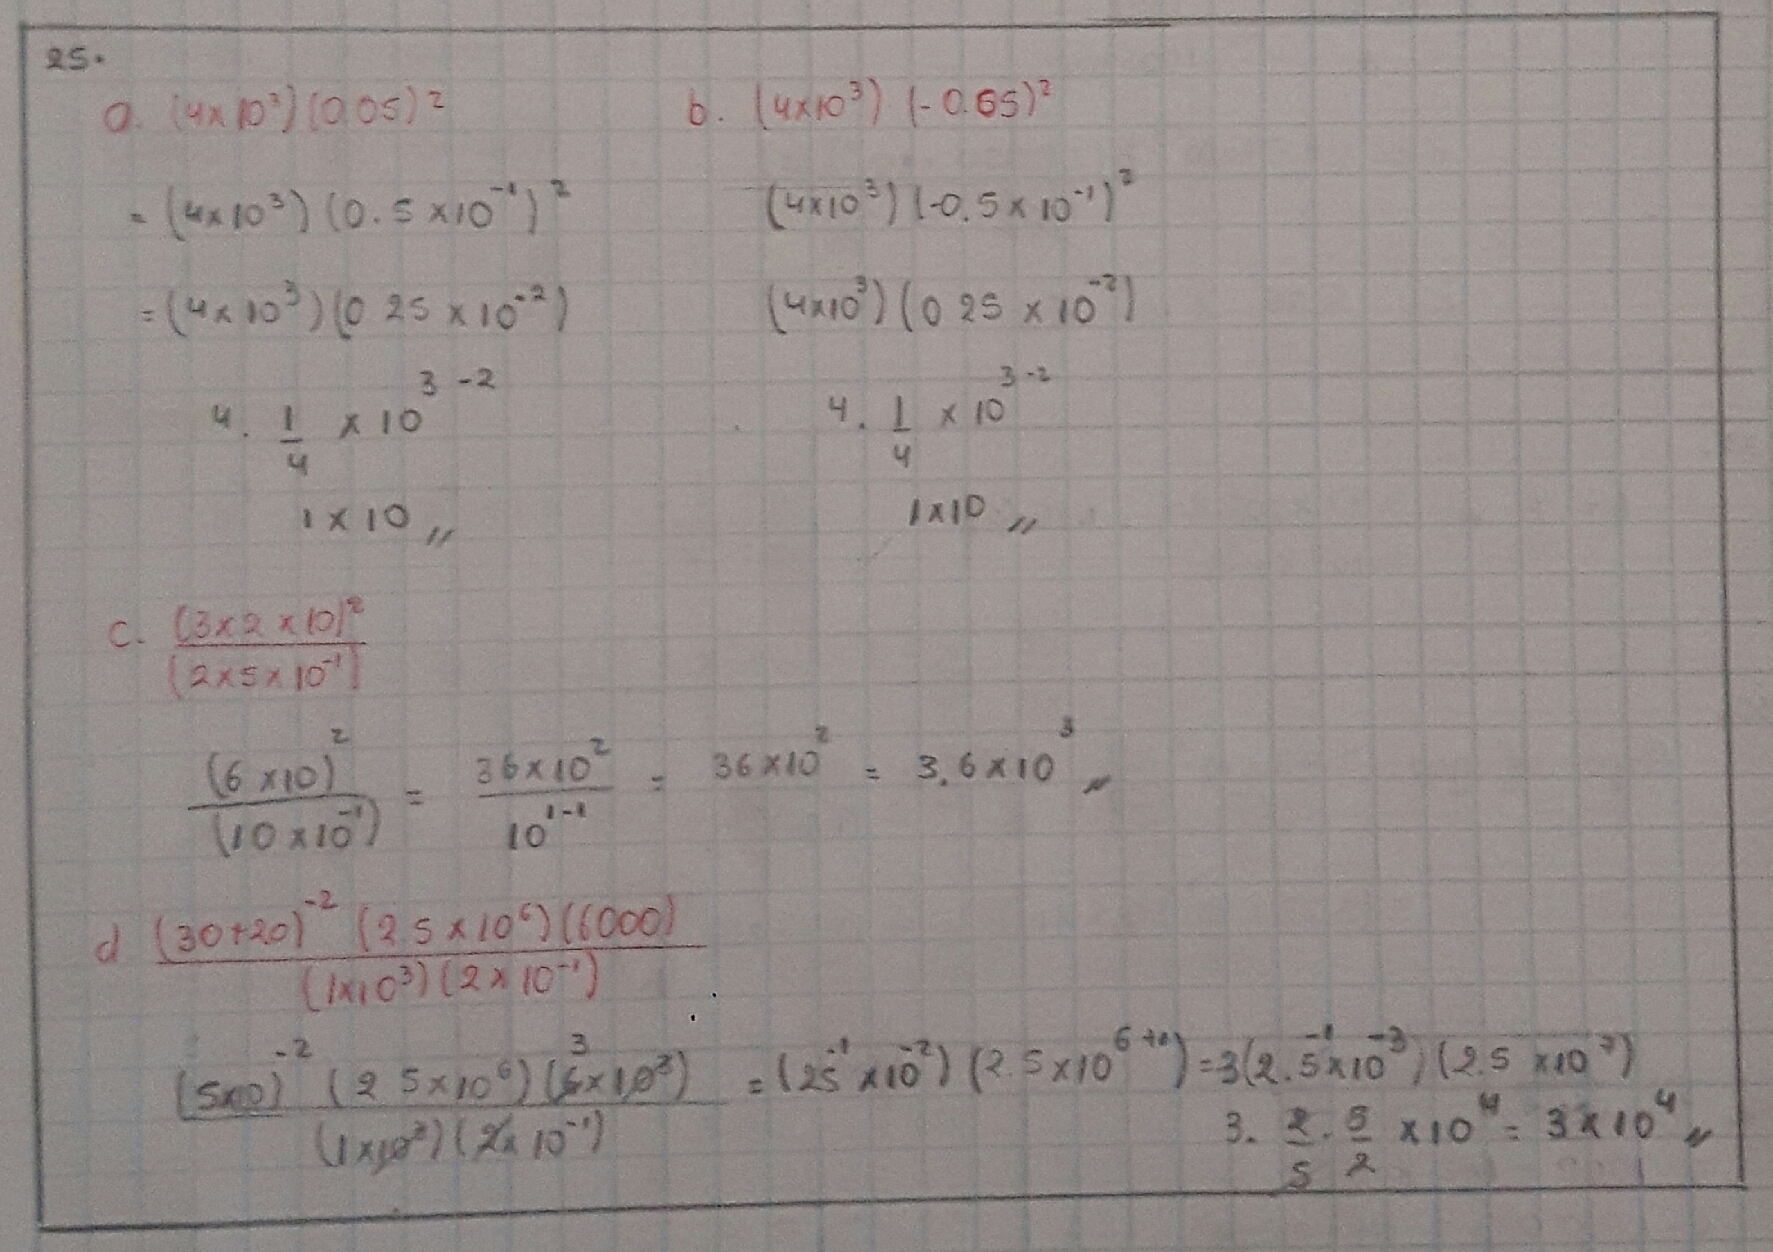 25.
a. (4x10³)(0.05)²
= (4x10³)(0.5x10⁻¹)²
= (4x10³)(0 25 x 10⁻²)
4. 1/4 x 10³⁻²
1x10 ,,
b. (4x10³)(-0.05)²
(4x10³)(-0.5x10⁻¹)²
(4x10³)(0 25 x 10⁻²)
4. 1/4 x 10³⁻²
1x10 ,,
c. (3x2x10)² / (2x5x10⁻¹)
(6x10)² / (10x10⁻¹) = 36x10² / 10¹⁻¹ = 36x10² = 3,6x10³ ,,
d (30+20)⁻² (2 5x10⁶)(6000) / (1x10³)(2x10⁻¹)
(5x10)⁻² (2 5x10⁶)(6x10³) / (1x10³)(2x10⁻¹) = (25⁻¹x10⁻²)(2.5x10 ) = 3(2.5⁻¹x10⁻³)(2.5x10⁷)
3. 2/5 . 5/2 x10⁴ = 3x10⁴ ,,